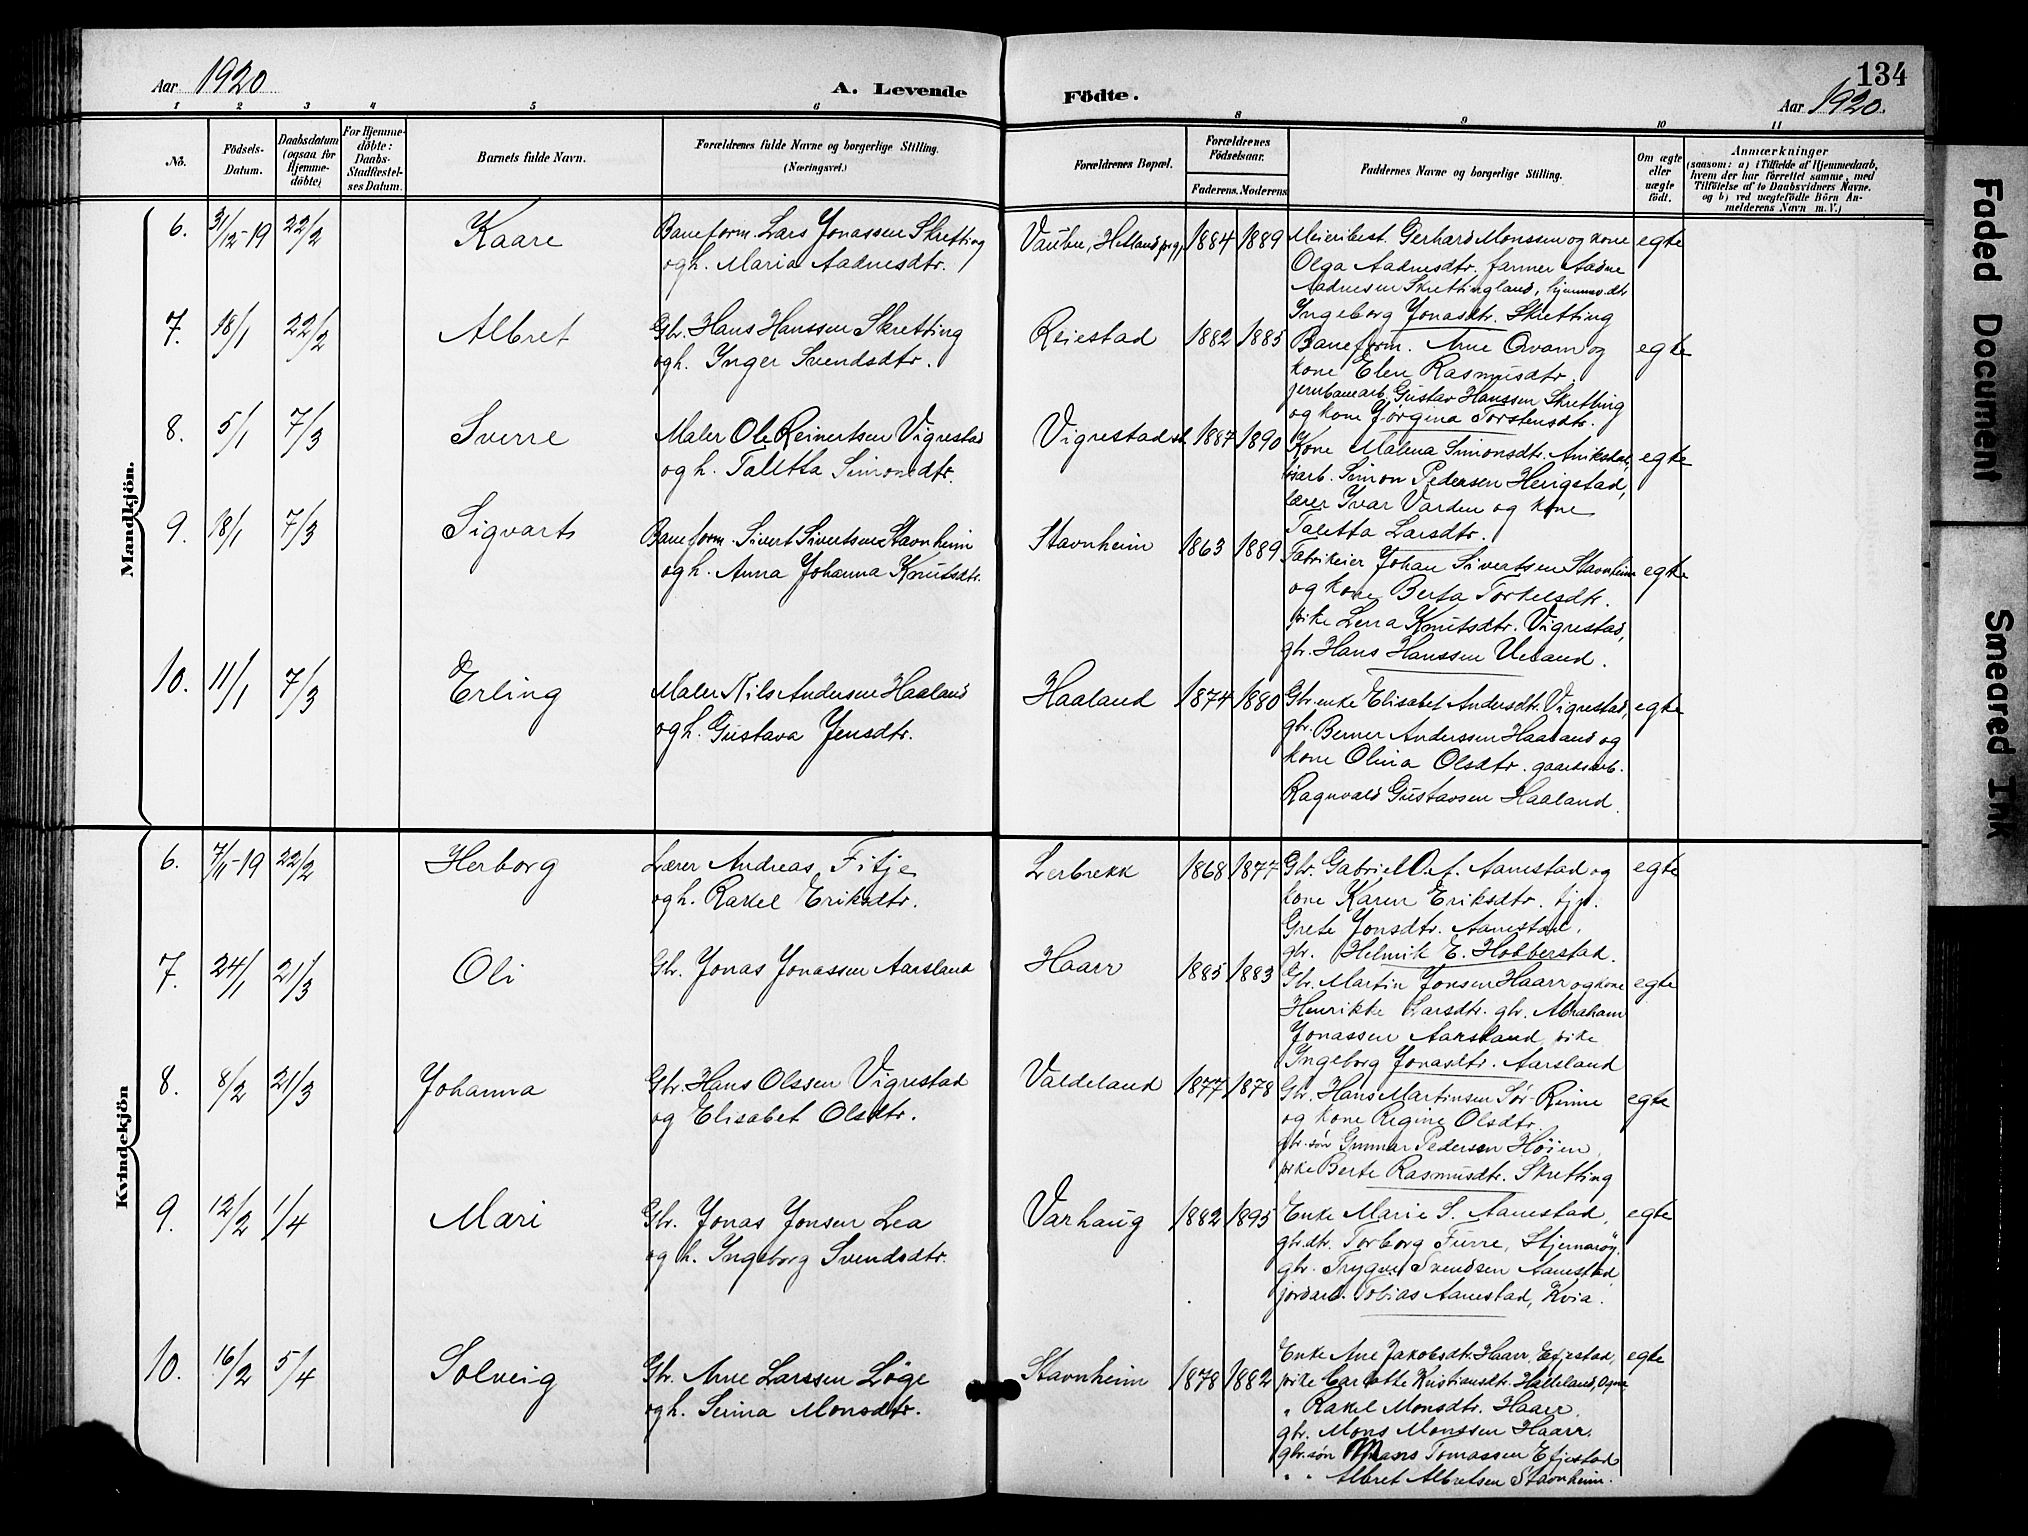 Aar 1920
A. Levende
Födte.
134
Aar 1920.
1 2 3 4 5 6 8 9 10 11
No.
Födsels-
Datum.
Daabsdatum
(ogsaa for
Hjemme-
döbte)
For Hjemme-
döbte:
Daabs-
Stadfæstel-
ses Datum.
Barnets fulde Navn.
Forældrenes fulde Navne og borgerlige Stilling.
(Næringsvei.)
Forældrenes Bopæl.
Forældrenes
Födselsaar.
Faderens. Moderens
Faddernes Navne og borgerlige Stilling.
Om ægte
eller
uægte
födt.
Anmærkninger
(saasom: a) i Tilfælde af Hjemmedaab,
hvem der har forrettet samme, med
Tilföielse af to Daabsvidners Navne.
og b) ved uægtefödte Börn An-
melderens Navn m. V.)
Mandkjön.
6. 31/12-19 22/2 Kaare
Baneform. Lars Jonassen Skretting
og h. Maria Aadnesdtr.
1884 1889
Meieribest. Gerhard Monssen og kone
Olga Aadnesdtr. farmer Aadne
Aadnesen Skrettingland, hjemmev. dtr
Ingeborg Jonasdtr. Skretting
egte
7. 18/1 22/2 Albret
Gbr. Hans Hanssen Skretting
og h. Inger Svendsdtr.
Reiestad 1882 1885
Baneform. Arne Qvam og
kone Elen Rasmusdtr.
jernbanearb. Gustav Hanssen Skretting
og kone Jørgina Torstensdtr.
egte
8. 5/1 7/3 Sverre
Maler Ole Reinertsen Vigrestad
og h. Taletta Simonsdtr.
Vigrestad st. 1887 1890
Kone Malena Simonsdtr. Aniksdal,
Simon Pedersen Heigstad,
lærer Ivar Varden og kone
Taletta Larsdtr.
egte
9. 18/1 7/3 Sigvarts
Baneform. Sivert Sivertsen Stavnheim
og h. Anna Johanna Knutsdtr.
Stavnheim 1863 1889
Fabrikeier Johan Sivertsen Stavnheim
og kone Berta Torkelsdtr.
pike Lena Knutsdtr. Vigrestad,
gbr. Hans Hanssen Ueland.
egte
10. 11/1 7/3 Erling
Maler Nils Andersen Haaland
og h. Gustava Jensdtr.
Haaland 1874 1880
Gbr.enke Elisabet Andersdtr. Vigrestad,
gbr. Berner Anderssen Haaland og
kone Olina Olsdtr. gaardsarb.
Ragnvald Gustavsen Haaland.
egte
Kvindekjön
6. 7/11-19 22/2 Herborg
Lærer Andreas Fitje
og h. Rakel Eriksdtr.
Lerbrekk 1868 1877
Gbr. Gabriel O. A. Aanestad og
kone Karen Eriksdtr. tjp.
Grete Jonsdtr. Aanestad,
gbr. Helmik E. Hobberstad.
egte
7. 24/1 21/3 Oli
Gbr. Jonas Jonassen Aarsland
Haarr 1885 1883
Gbr. Martin Jonsen Haarr og kone
Henrikke Larsdtr. gbr. Abraham
Jonassen Aarsland, pike
Ingeborg Jonasdtr. Aarsland
egte
8. 8/2 21/3 Johanna
Gbr. Hans Olssen Vigrestad
og Elisabet Olsdtr.
Valdeland 1877 1878
Gbr. Hans Martinsen Sør-Rinne
og kone Regine Olsdtr.
gbr. søn Gunnar Pedersen Høien,
pike Berte Rasmusdtr. Skretting
egte
9. 12/2 1/4 Mari
Gbr. Jonas Jonsen Lea
og h. Ingeborg Svendsdtr.
Varhaug 1882 1895
Enke Marie S. Aanestad,
gbr.dtr. Torborg Furre, Stjernarøy,
gbr. Trygve Svendsen Aanestad,
jordarb. Tobias Aanestad, Kvia.
egte
10. 16/2 5/4 Solveig
Gbr. Arne Larssen Løge
og h. Serina Monsdtr.
Stavnheim 1878 1882
Enke Ane Jakobsdtr. Haarr, Efjestad,
pike Carlotte Kristiansdtr. Halleland, Ogna
„ Rakel Monsdtr. Haarr,
gbr. Mons Monssen Haarr,
gbr.søn Mans Tomassen Efjestad
„ „ Albret Albretsen Stavnheim.
egte
Faded Document
Smeared Ink